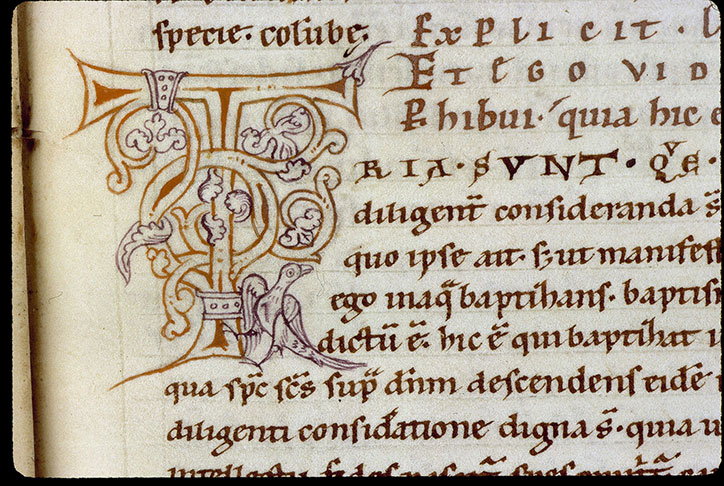 specie · colūbę.
Explicit ·
Et ego vid
Phibui · quia hic e
TRIA · SVNT · QVE ·
diligent̄ consideranda s̄
quo ipse ait · s; ut manifest
ego inaq̄ baptihans · baptism
dictū ē · hic ē qui baptihat i
qua sp̄c sc̄s sup̄ dn̄m descendens eidē
diligenti consid̄atione digna s̄ · quia u